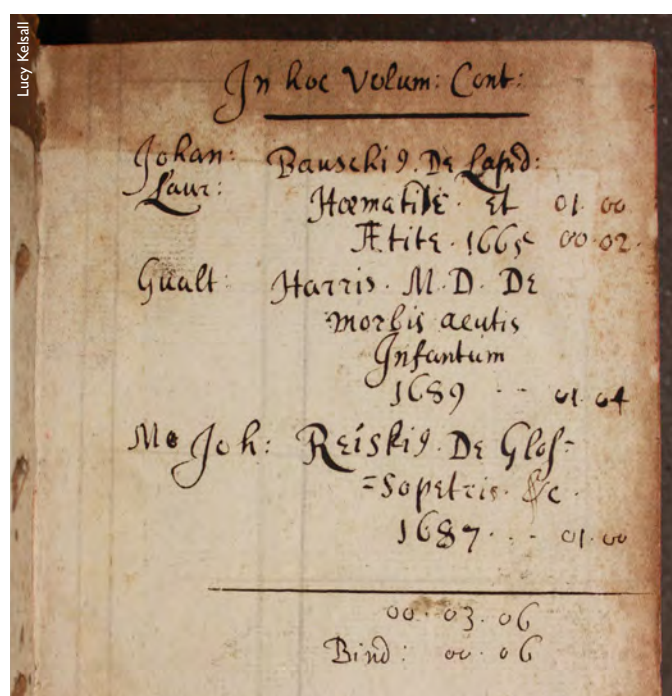 Lucy Kelsall
In hoc Volum: Cont:
Johan: Bauschi9. De Lapid:
Laur: Hæmatite. Et 01 00
Ætite. 1665 00 02.
Gualt: Harris. M. D. De
morbis acutis
Infantum
1689 - - 01 04
Me Joh: Reiski9. De Glos=
=sopetris. &c.
1687 - - - 01 00
00 . 03 . 06
Bind: 00 . 06